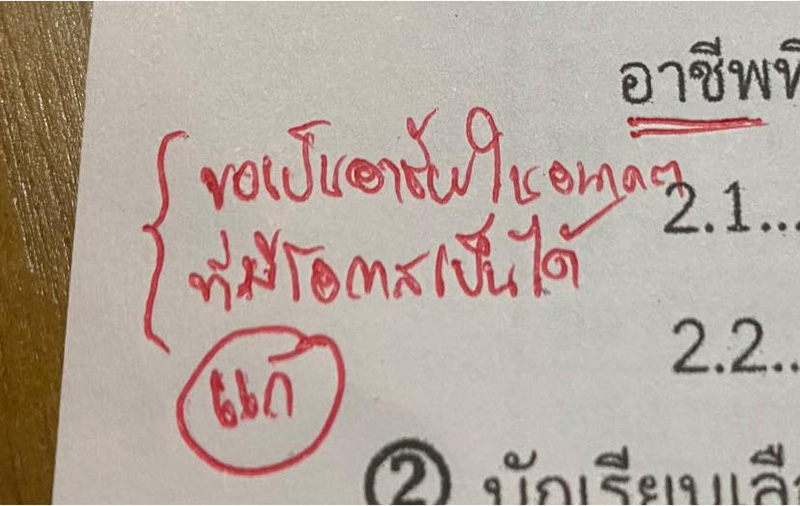 อาชีพที
ขอเป็นอาชีพในอนาคตๆ
ที่มีโอกาสเป็นได้
2.1...
2.2..
แก้
② นักเรียนเลือ